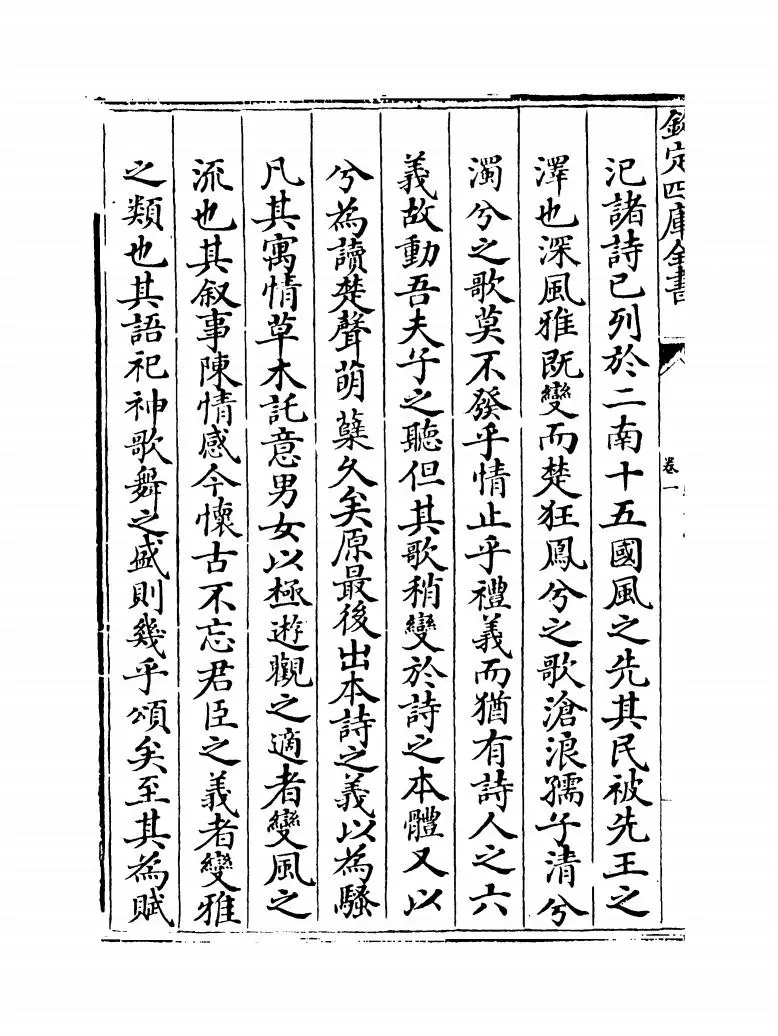 欽定四庫全書
卷一
汜諸詩已列於二南十五國風之先其民被先王之
澤也深風雅既變而楚狂鳳兮之歌滄浪孺子清兮
濁兮之歌莫不發乎情止乎禮義而猶有詩人之六
義故動吾夫子之聽但其歌稍變於詩之本體又以
兮為讀楚聲萌蘖久矣原最後出本詩之義以為騷
凡其寓情草木託意男女以極遊觀之適者變風之
流也其叙事陳情感今懷古不忘君臣之義者變雅
之類也其語祀神歌舞之盛則幾乎頌矣至其為賦